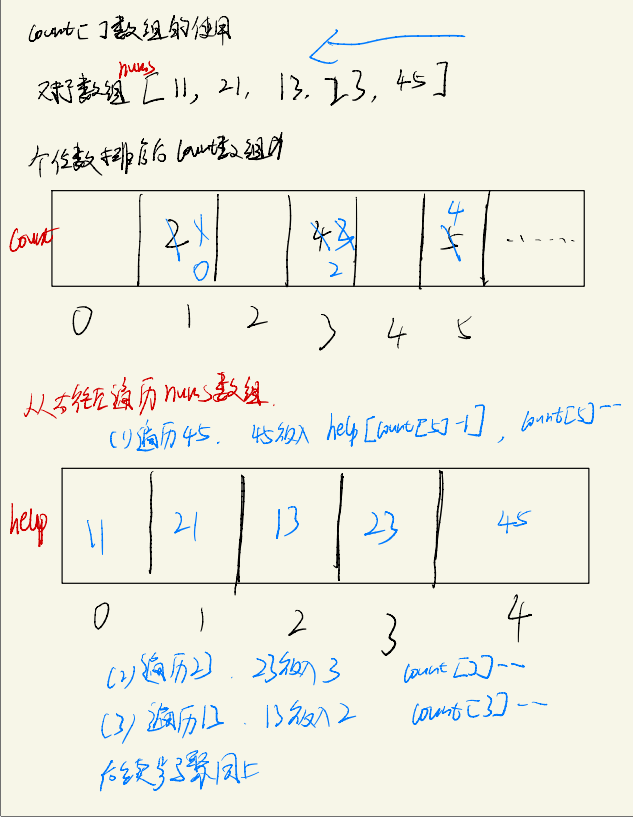 count[]数组的使用
nums
对于数组 [11, 21, 13, 23, 45]
个位数排序后count数组为
count 2 1 0 4 3 2 5 4 ......
0 1 2 3 4 5
从右往左遍历nums数组.
(1)遍历45. 45放入 help[count[5]-1], count[5]--
help 11 21 13 23 45
0 1 2 3 4
(2)遍历23. 23放入3 count[3]--
(3)遍历13. 13放入2 count[3]--
后续步骤同上